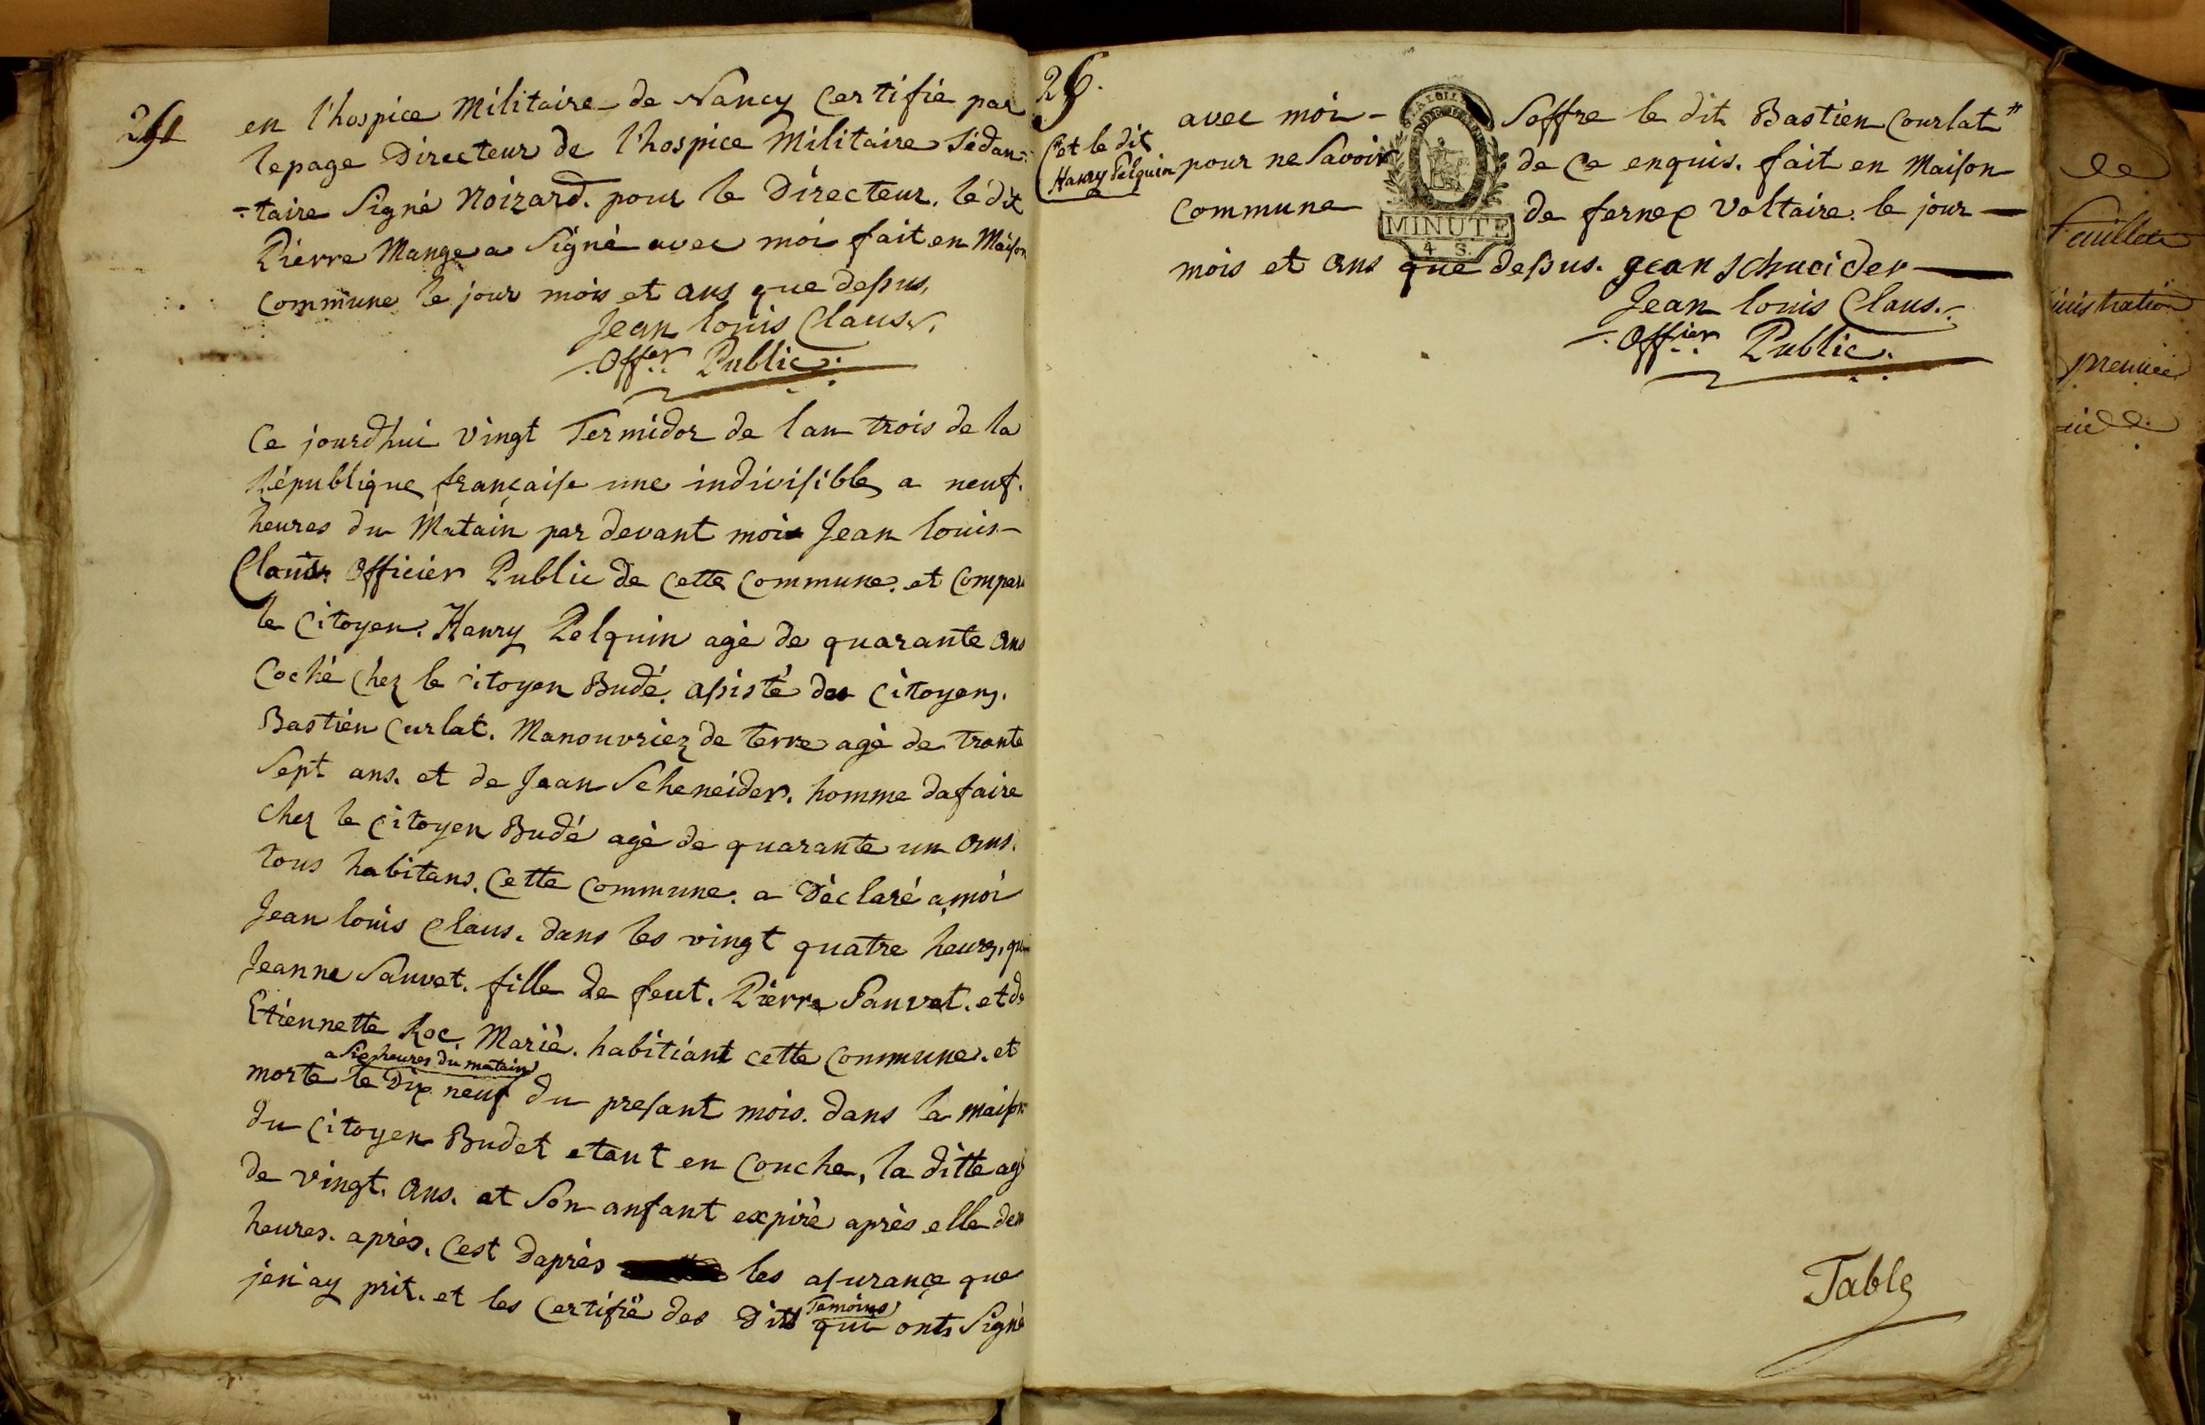 en l'hospice Militaire de Nancy Certifié par
lepage Directeur de l'hospice Militaire Sédan:
-taire Signé Noizard. pour le Directeur. le dit
Pierre Mange a Signé avec moi fait en Maison
Commune le jour mois et ans que dessus.
Jean louis Claus.
Offer. Public.
Ce jourdhui vingt Termidor de lan trois de la
République française une indivisible a neuf.
heures du Matain par devant moi Jean louis
Claus Officier Public de cette Commune. et Comparu
le Citoyen. Hanry Pelquin agé de quarante ans
Coché chez le Citoyen Budé. assisté des Citoyens.
Bastien Curlat. Manouvriez de terre agé de trante
Sept ans. et de Jean Scheneider. homme dafaire
chez le Citoyen Budé agé de quarante un ans.
tous habitans. Cette Commune. a Déclaré a moi
Jean louis Claus. dans les vingt quatre heures. que
Jeanne Sauvet. fille de feut. Pierre Sauvet. et de
Etiennette Roc. Marié. habitiant cette Commune. et
a Sip heures du matain
morte le Dix neuf du presant mois. dans la maison
du Citoyen Budet etant en Couche, la ditte agé
de vingt. ans. et Son anfant expiré après elle deux
heures. après. C'est Daprès les assurance que
jen ay prit. et les Certifié des Dits Temoins qui onts Signé
26.
avec moi - Soffre le dit Bastien Courlat #
(et le dit
Hanry Pelquin
pour ne Savoir de Ce enquis. fait en Maison
Commune de fernex Voltaire. le jour
MINUTE
4 S.
mois et ans que dessus. Jean Schneider
Jean louis Claus.
Offier. Public.
Table
de
feuillets
inistration
premier